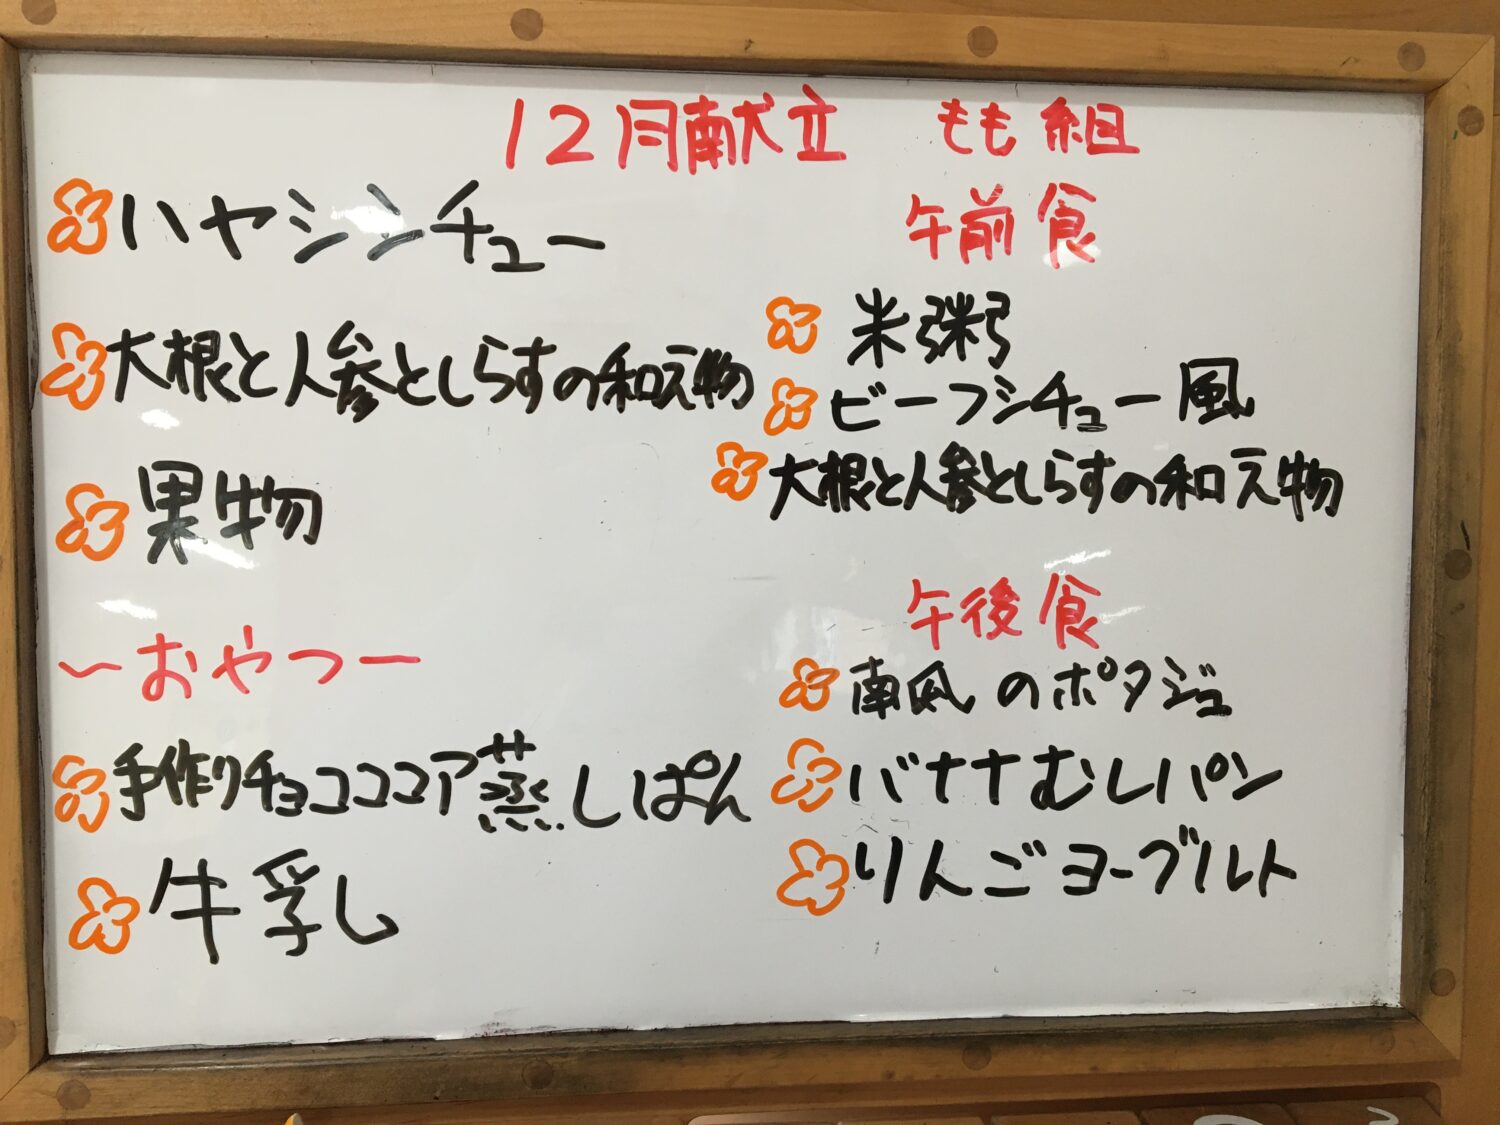 12月献立 もも組
ハヤシシチュー
大根と人参としらすの和え物
果物
〜おやつー
手作りチョコココア蒸しぱん
牛乳
午前食
米粥
ビーフシチュー風
大根と人参としらすの和え物
午後食
南風のポタジュ
バナナむしパン
りんごヨーグルト